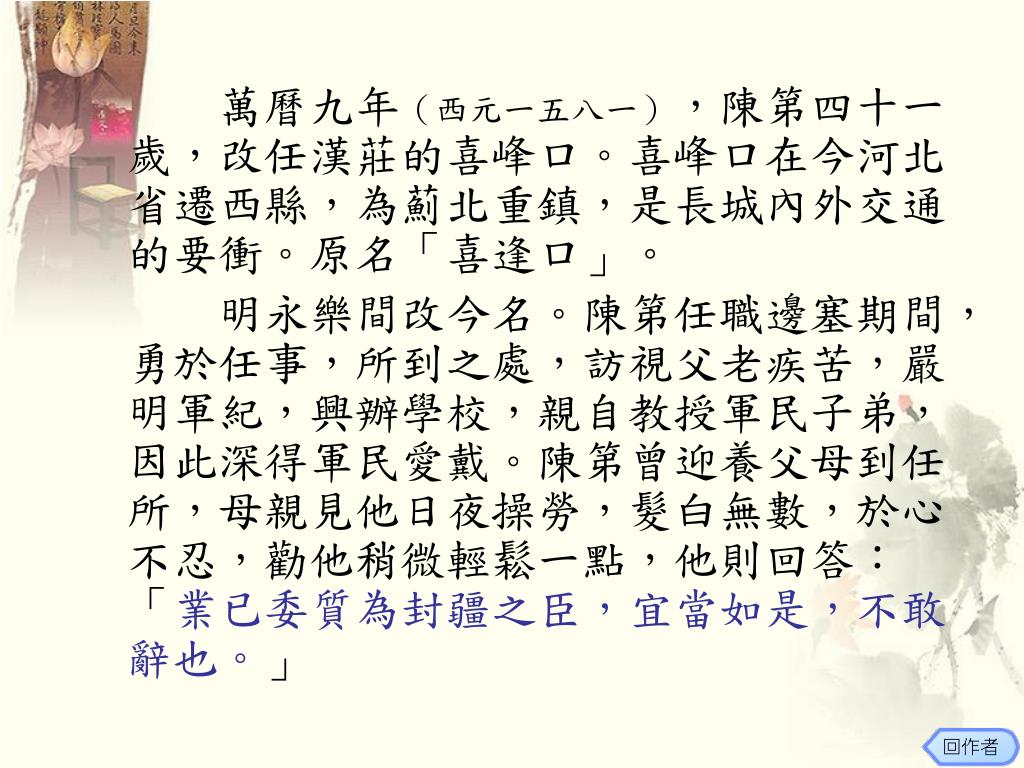 萬曆九年（西元一五八一），陳第四十一
歲，改任漢莊的喜峰口。喜峰口在今河北
省遷西縣，為薊北重鎮，是長城內外交通
的要衝。原名「喜逢口」。
明永樂間改今名。陳第任職邊塞期間，
勇於任事，所到之處，訪視父老疾苦，嚴
明軍紀，興辦學校，親自教授軍民子弟，
因此深得軍民愛戴。陳第曾迎養父母到任
所，母親見他日夜操勞，髮白無數，於心
不忍，勸他稍微輕鬆一點，他則回答：
「業已委質為封疆之臣，宜當如是，不敢
辭也。」
回作者